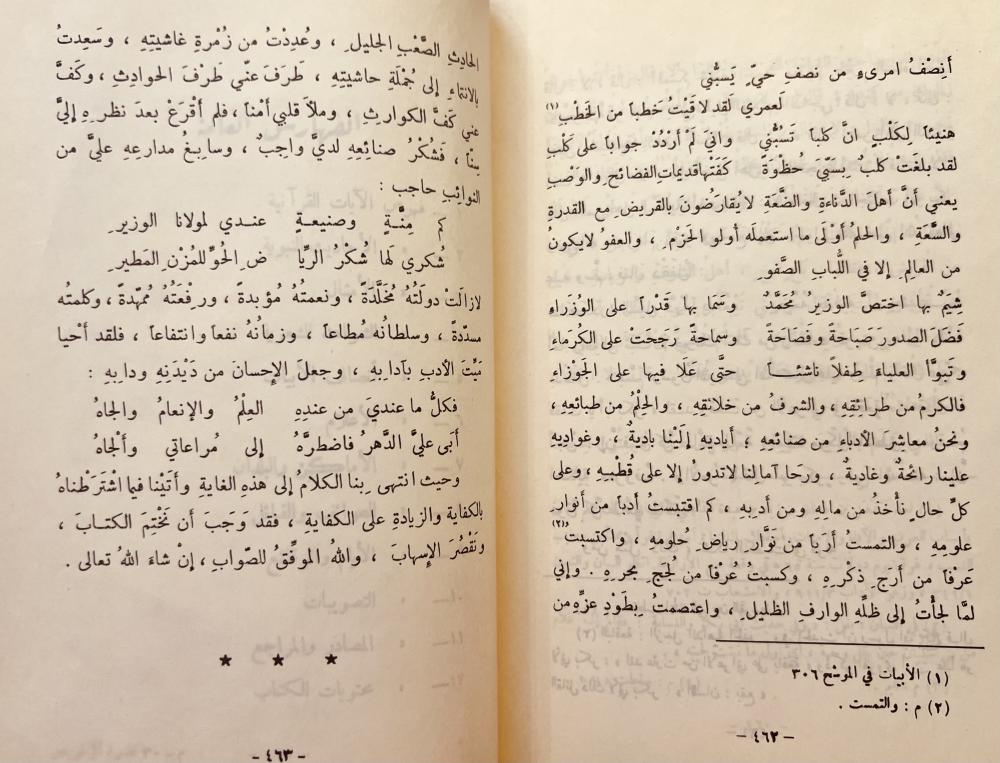 أنِصْفُ امرىءٍ من نصفِ حيٍّ يَسبُّني
لَعمري لَقد لاقَيْتُ خَطباً من الخَطْبِ(١)
هنيئاً لِكَلْبٍ انَّ كلباً تَسُبُّني وانيَ لَمْ أرْدُدْ جواباً على كَلْبِ
لقد بلغَتْ كلبٌ بِسَبّيَ حُظْوَةً كَفَتْها قديماتِ الفضائحِ والوَصْبِ
يعني أنَّ أهلَ الدَّناءةِ والضَّعَةِ لا يُقارَضُونَ بالقريضِ مع القدرةِ
والسَّعَةِ ، والحلمُ أوْلَى ما استعملَه أولو الحَزْمِ ، والعفوُ لا يكونُ
من العالِمِ إلا في اللُّبابِ الصَّفوِ
شِيَمٌ بها اختصَّ الوزيرُ مُحَمَّدٌ وسَمَا بها قَدْراً على الوُزَراءِ
فَضَلَ الصدورَ صَباحَةً وفَصَاحَةً وسماحةً رَجَحَتْ على الكُرَماءِ
وتَبوَّأ العلياءَ طِفلاً ناشئــاً حتَّى عَلَا فيها على الجَوْزاءِ
فالكرمُ من طرائقِهِ ، والشرفُ من خلائقِهِ ، والحِلْمُ من طبائعِهِ ،
ونحنُ معاشِرَ الأدباءِ من صنائعِهِ ؛ أياديهِ إلَيْنا باديةٌ ، وغواديهِ
علينا رائحةٌ وغاديةٌ ، ورحَا آمالِنا لا تدورُ إلا على قُطْبِهِ ، وعلى
كلِّ حالٍ نأخذُ من مالِهِ ومن أدبِهِ ، كم اقتبستُ أدباً من أنوارِ
علومِهِ ، والتمستُ أرَباً من نَوَّارِ رياضِ حُلومِهِ ، واكتسبتُ(٢)
عَرفاً من أرَجِ ذكْرِهِ ، وكسبتُ عُرْفاً من لُججِ بحرِهِ . وإني
لمَّا لجأتُ إلى ظلِّهِ الوارفِ الظليلِ ، واعتصمتُ بِطَوْدِ عزِّهِ من
(١) الأبيات في الموشح ٣٠٦
(٢) م : والتمست .
- ٤٦٢ -
الحادِثِ الصَّعْبِ الجليلِ ، وعُدِدْتُ من زُمْرةِ غاشيتِهِ ، وسَعِدتُ
بالانتماءِ إلى جُمْلَةِ حاشيتِهِ ، طَرَفَ عنّي طَرْفَ الحوادِثِ ، وكَفَّ
عني كَفَّ الكوارِثِ ، وملأ قلبي أمْناً ، فلم أقْرَعْ بعدَ نظرِهِ إليَّ
سِنّاً ، فَشُكْرُ صنائعِهِ لديَّ واجبٌ ، وسابِغُ مدارعِهِ عليَّ من
النوائبِ حاجب :
كم مِنَّــةٍ وصنيعــةٍ عنــدي لمولانا الوزيرِ
شُكري لَها شُكْرُ الرِّيا ضِ الحُوِّ للمُزْنِ المَطيرِ
لا زالَتْ دولَتُهُ مُخَلَّدَةً ، ونعمتُهُ مُؤبدةً ، ورِفْعَتُهُ مُمهّدةً ، وكلمتُه
مسدّدةً ، وسلطانُه مُطاعاً ، وزمانُهُ نفعاً وانتفاعاً ، فلقد أحْيا
مَيِّتَ الأدبِ بآدابِهِ ، وجعلَ الإحسانَ من دَيْدَنِهِ ودابِهِ :
فكلُّ ما عنديَ من عندِهِ العِلْمُ والإنعامُ والجاهُ
أبَى عليَّ الدَّهرُ فاضطرَّهُ إلى مُراعاتي وألْجاهُ
وحيث انتهى بِنا الكلامُ إلى هذهِ الغايةِ وأتَيْنا فيما اشْتَرَطْناهُ
بالكفايةِ والزيادةِ على الكفايةِ ، فقد وَجَبَ أن نَخْتِمَ الكتــابَ ،
ونَقْصُرَ الإسهابَ ، واللهُ الموفِّقُ للصّوابِ ، إنْ شاءَ اللهُ تعالى .
★ ★ ★
- ٤٦٣ -